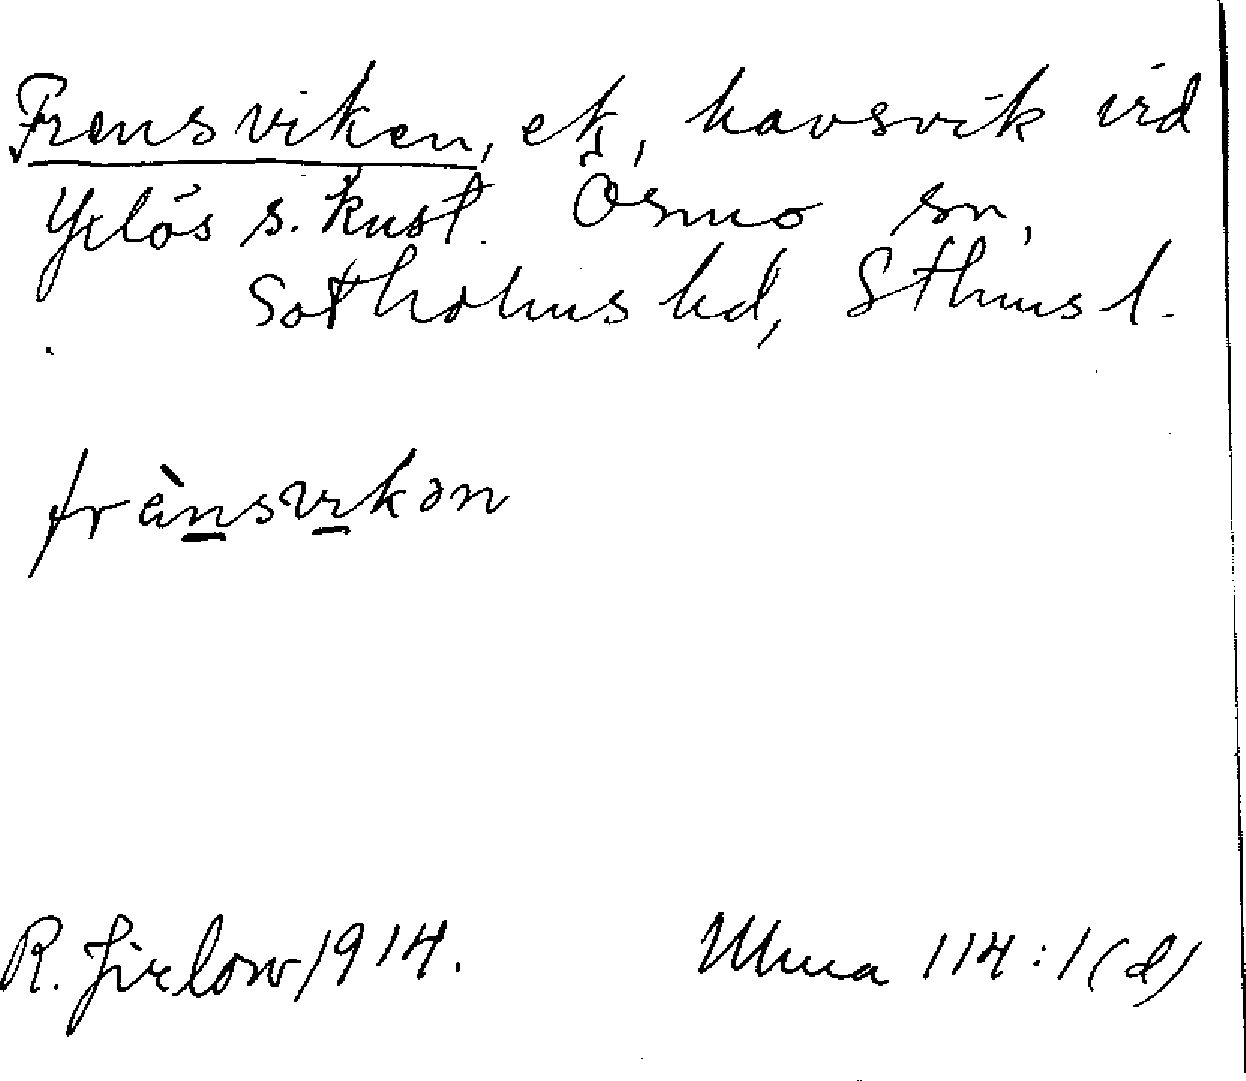 Frensviken, ek, havsvik vid
Yxlös s. kust. Ösmo sn,
Sotholms hd, Sthms l.
frènsvikən
R. Jirlow 1914.
Ulma 114:1(d)